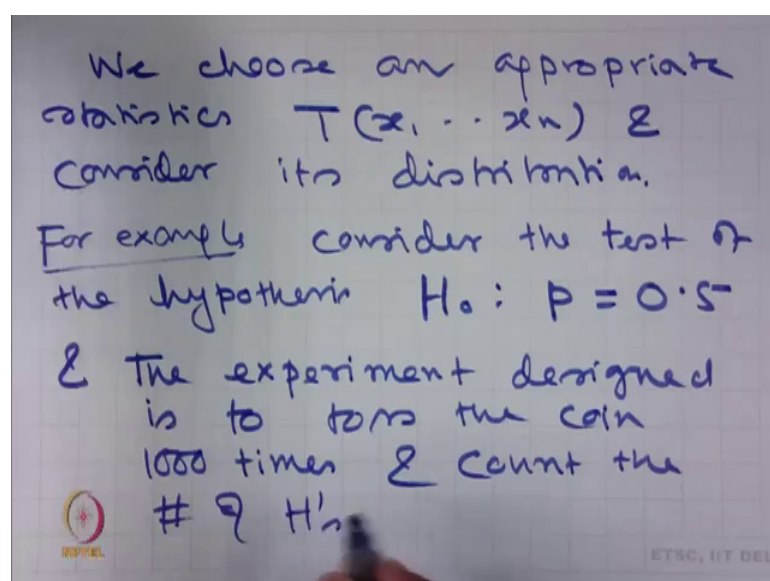 We choose an appropriate
statistics T(x, .. xn) &
consider its distribution.
For example consider the test of
the hypothesis H₀: P = 0.5
& The experiment designed
is to toss the coin
1000 times & count the
# of H's
NPTEL
ETSC, IIT DEL